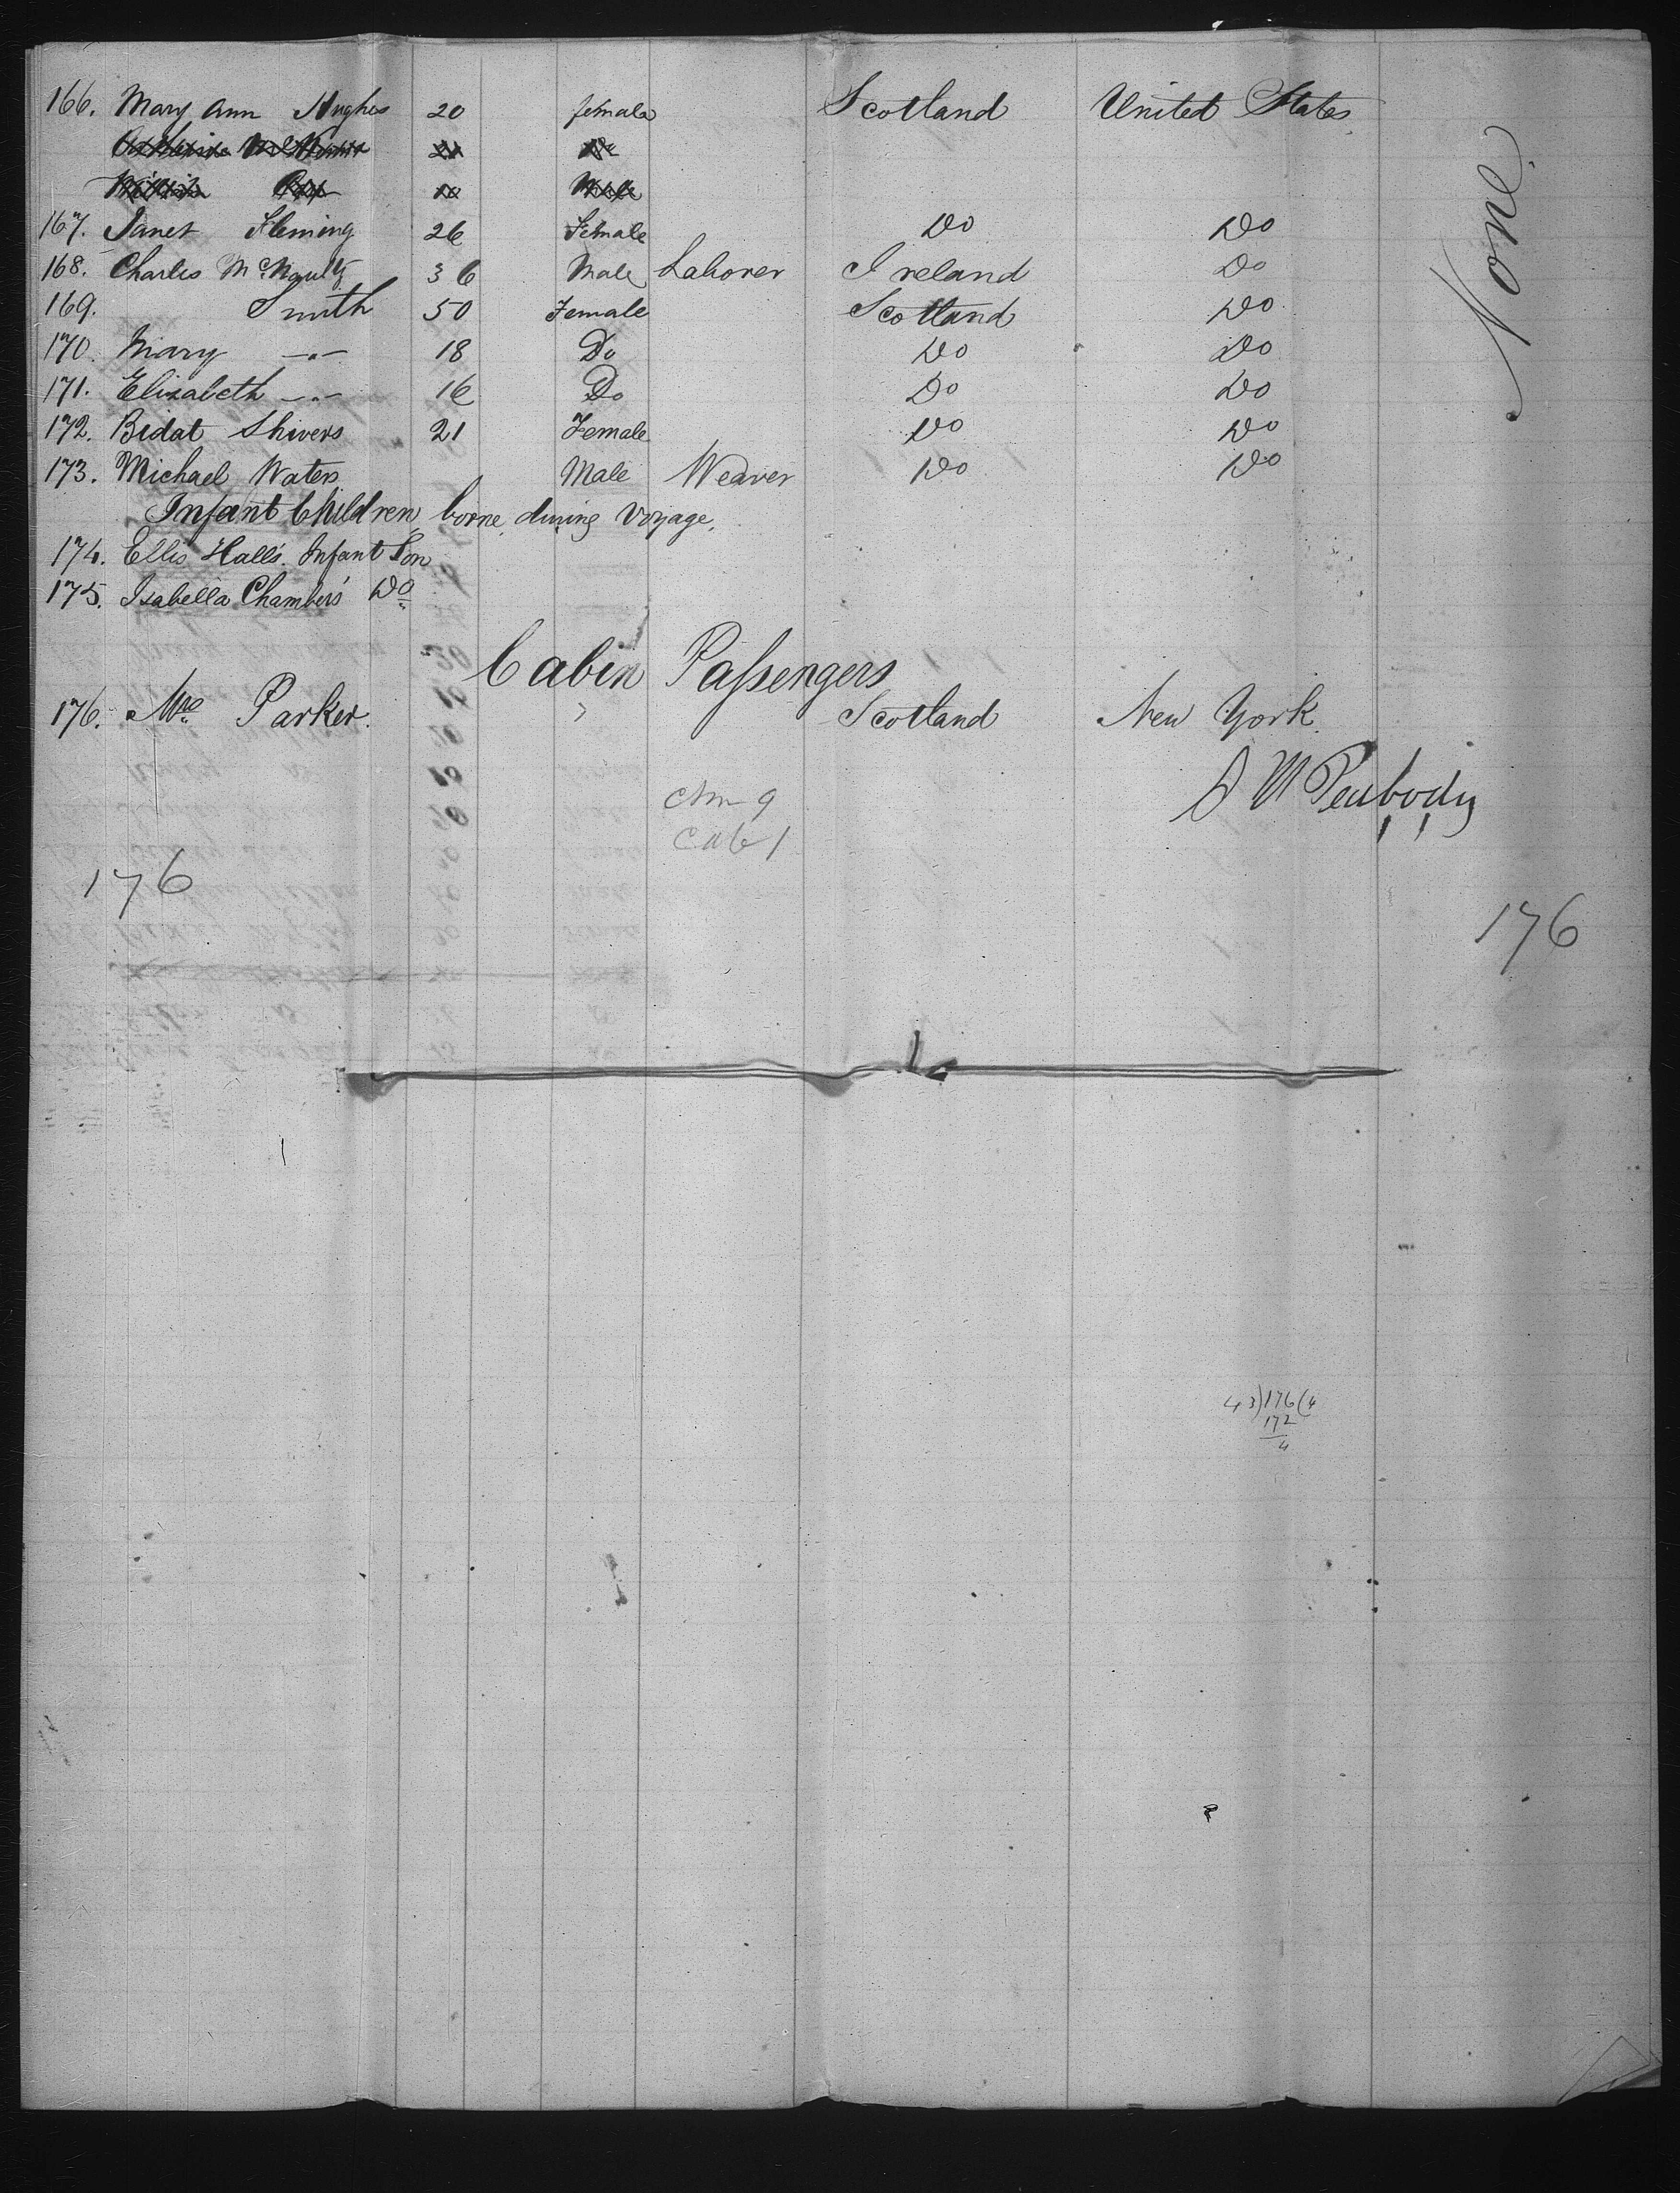 166. Mary Ann Hughes 20 female Scotland United States
21 Do
Male
167. Janet Fleming 26 Female Do Do
168. Charles McNaulty 36 Male Laborer Ireland Do
169. Smith 50 Female Scotland Do
170. Mary —"— 18 Do Do Do
171. Elizabeth —"— 16 Do Do Do
172. Bidat Shivers 21 Female Do Do
173. Michael Waters Male Weaver Do Do
Infant Children borne during Voyage.
174. Ellis Hall's Infant Son
175. Isabella Chambers' Do
None
Cabin Passengers
176. Mrs Parker. Scotland New York.
Peabody
9
Cab 1
176
176
43)176(4
172
4